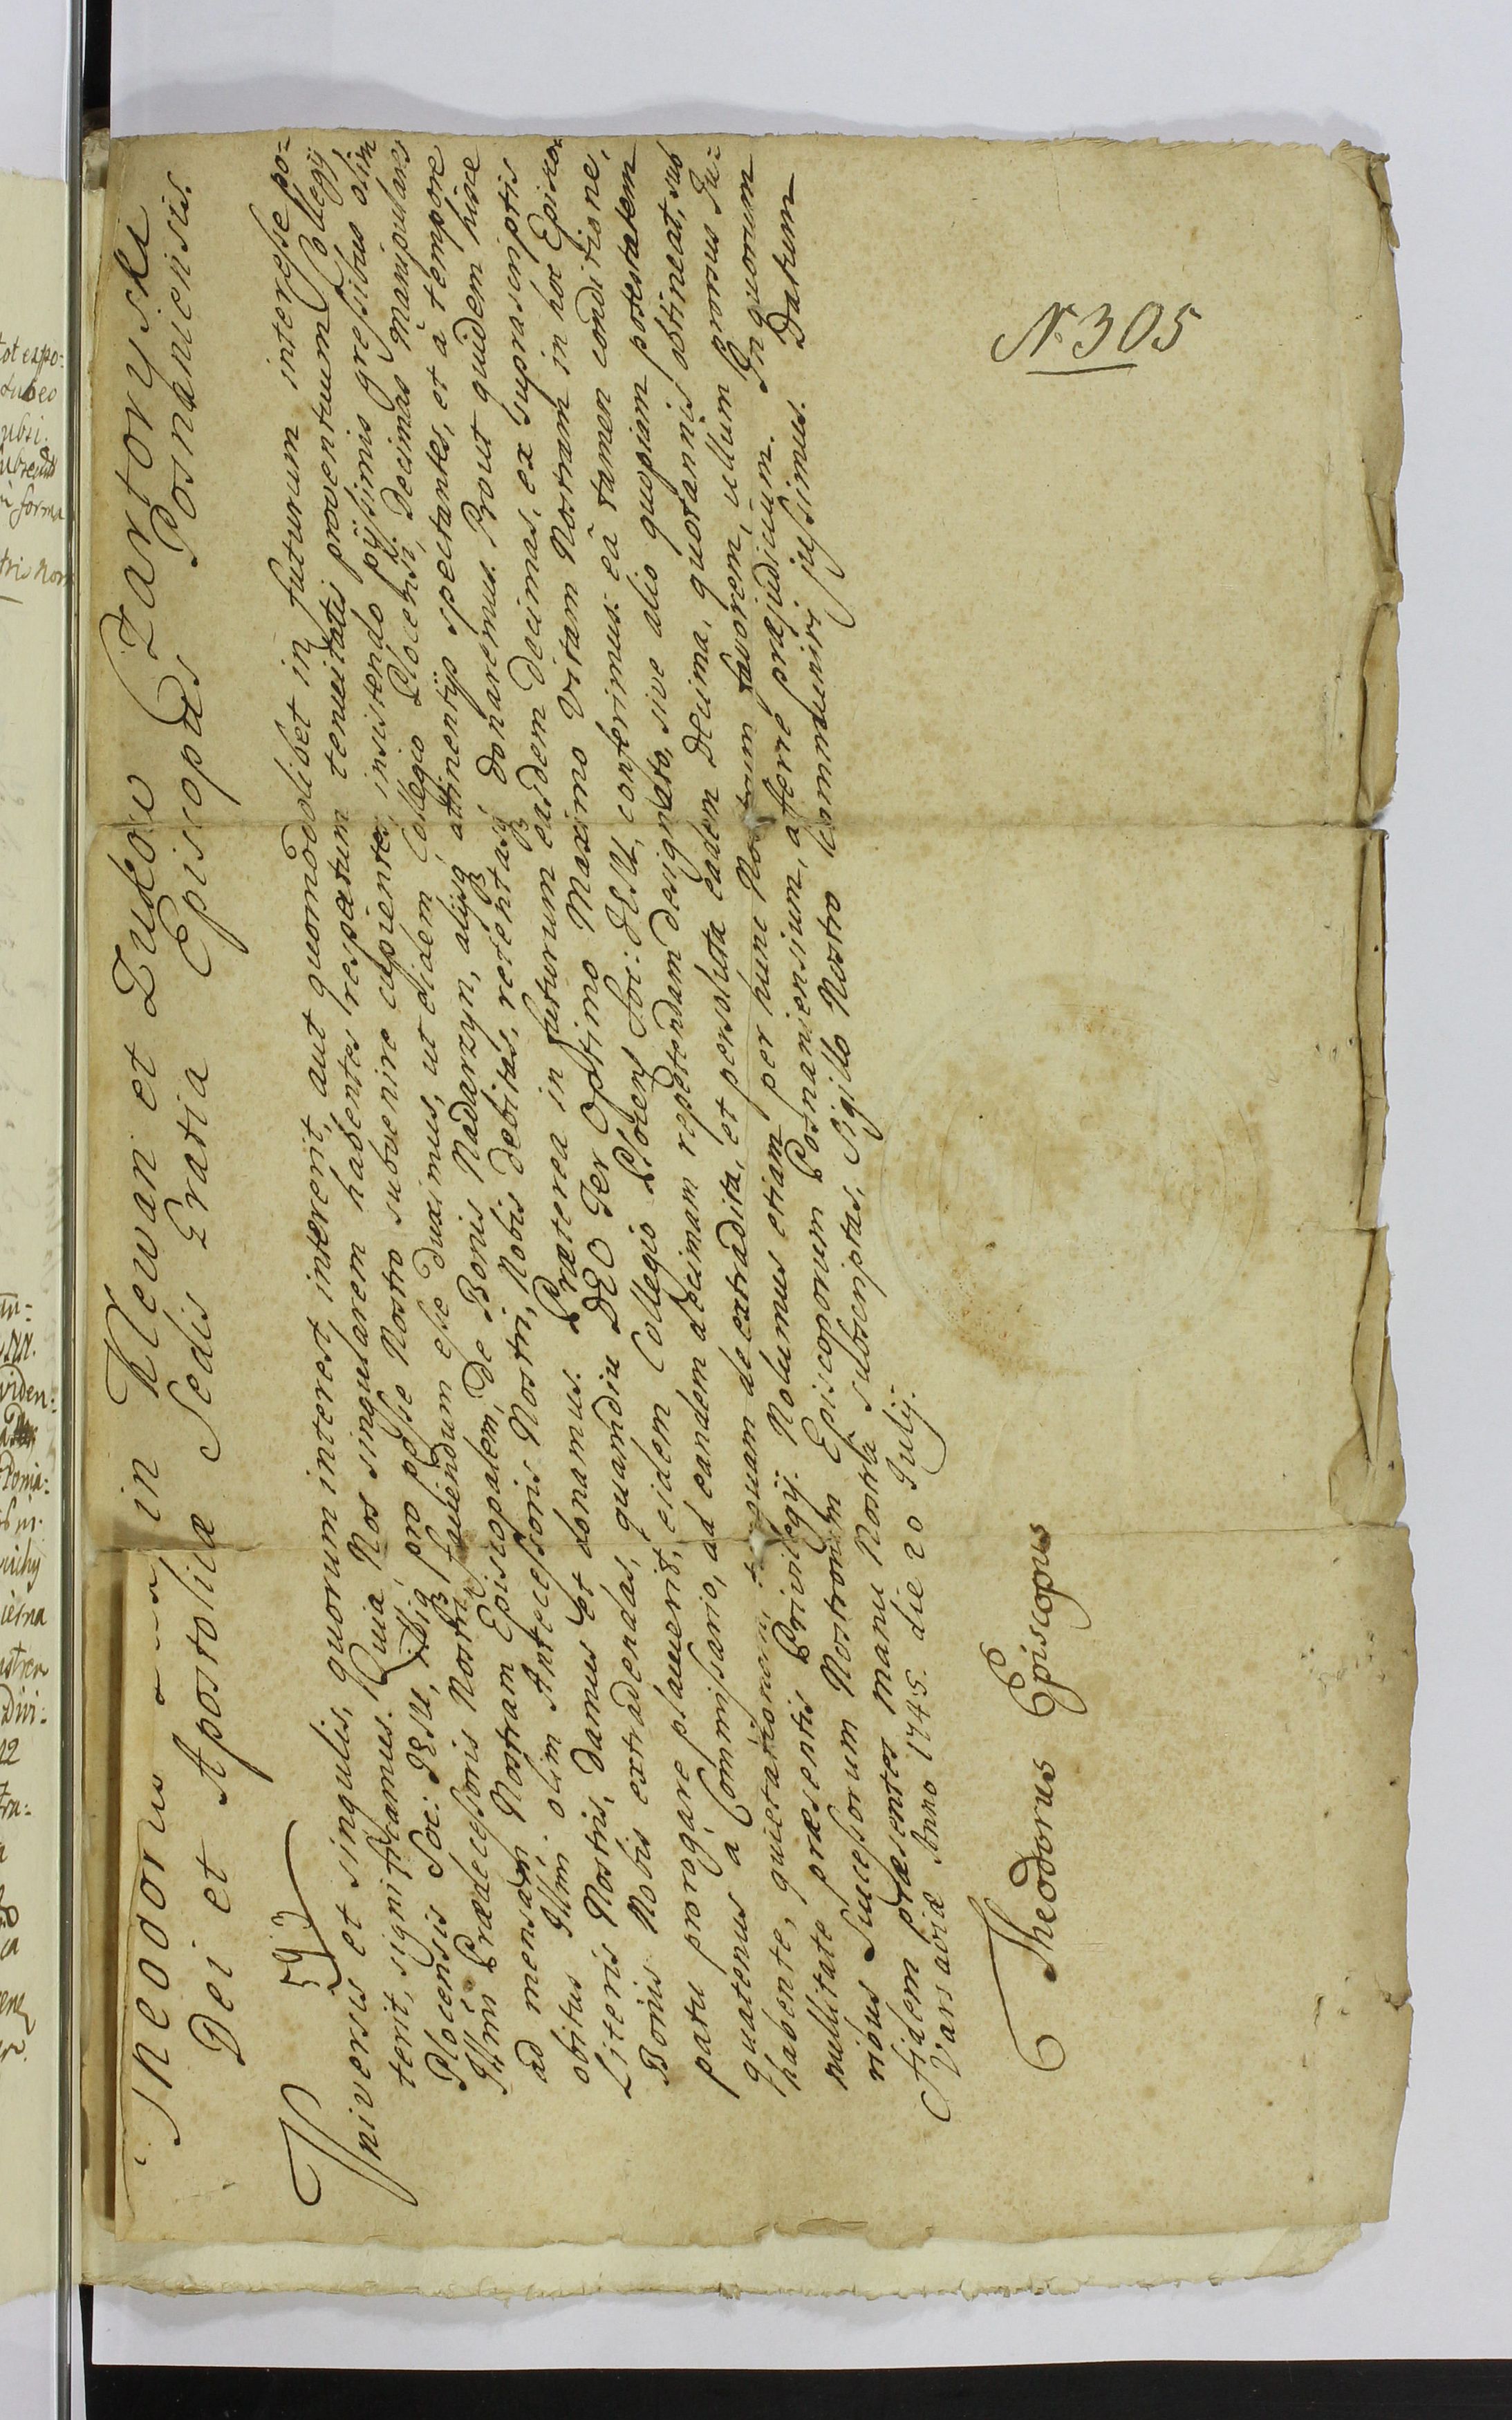 Theodorus in Klewan et Zukow Zartoryski
Dei et Apostolicæ Sedis Gratia Episcopus Posnaniensis.
59)
Universis et singulis, quorum interest, intererit, aut quomodolibet in futurum interesse po=
terit, significamus. Quia Nos singularem habentes respectum tenuitatis proventuum Collegij
Plocensis Soc: JESU, Eiq, pro posse Nostro subvenire cupientes, insistendo pijssimis gressibus olim
Illmi Prædecessoris Nostri, favendum esse duximus, ut eidem Collegio Plocensi, Decimas Manipulares
ad mensam Nostram Episcopalem, de Bonis Nadarzyn, alijsq attinentijs spectantes, et à tempore
obitus Illmi olim Antecessoris Nostri, Nobis debitas, retentasq donaremus. Prout quidem hisce
Literis Nostris, damus et donamus. Præterea in futurum easdem Decimas, ex suprascriptis
Bonis Nobis extradendas, quamdiu DEO Ter Optimo Maximo Vitam Nostram in hoc Episco=
patu prorogare placuerit, eidem Collegio Plocens Soc: JESU, conferimus: eâ tamen conditione,
quatenus à Commissario, ad eandem decimam repetendam designato, sive alio quopiam potestatem
habente, quietationem quam de extradita, et persoluta eadem Decima, quotannis obtineat, sub
nullitate præsentis Privilegij. Nolumus etiam per hunc Nostrum favorem, ullum prorsus Ju=
ribus Successorum Nostrorum Episcoporum Posnaniensium, afferre præjudicium. In quorum
Fidem præsentes manu Nostra subscriptas, Sigillo Nostro communiri jussimus. Datum
Varsaviæ Anno 1745. die 20 Julij.
Theodorus Episcopus
N. 305
tot expo:
ubsi.
forma
viden:
Divi: